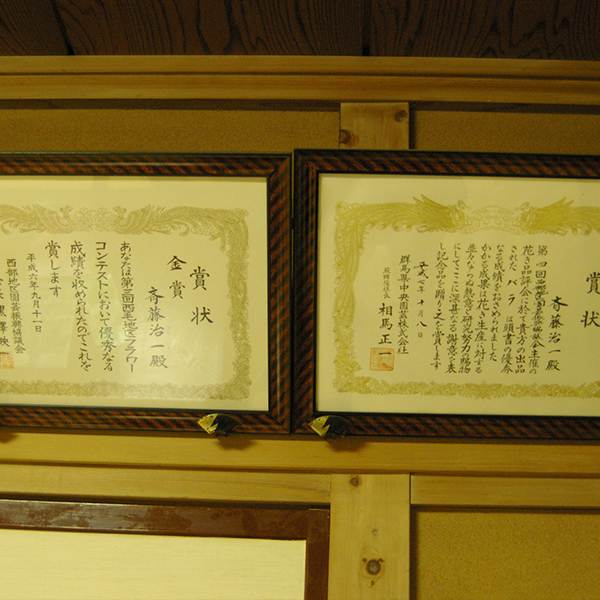 賞状
金賞
斉藤治一殿
あなたは第三回西毛地区フラワー
コンテストにおいて優秀なる
成績を収められたのでこれを
賞します
平成六年九月十一日
西部地区園芸振興協議会
賞
斉藤治一殿
花き品評会に於て貴方の出品
された バラ は頭書の優秀
なる成績をおさめられました
かかる成果は花き生産に対する
並々ならぬ熱意と研究努力の賜物
にしてここに深甚なる謝意を表
し記念品を贈り之を賞します
平成七年十月八日
群馬県中央園芸株式会社
取締役社長 相馬正一